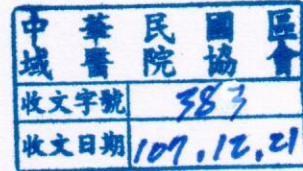 中華民國區
域醫院協會
收文字號 383
收文日期 107.12.21